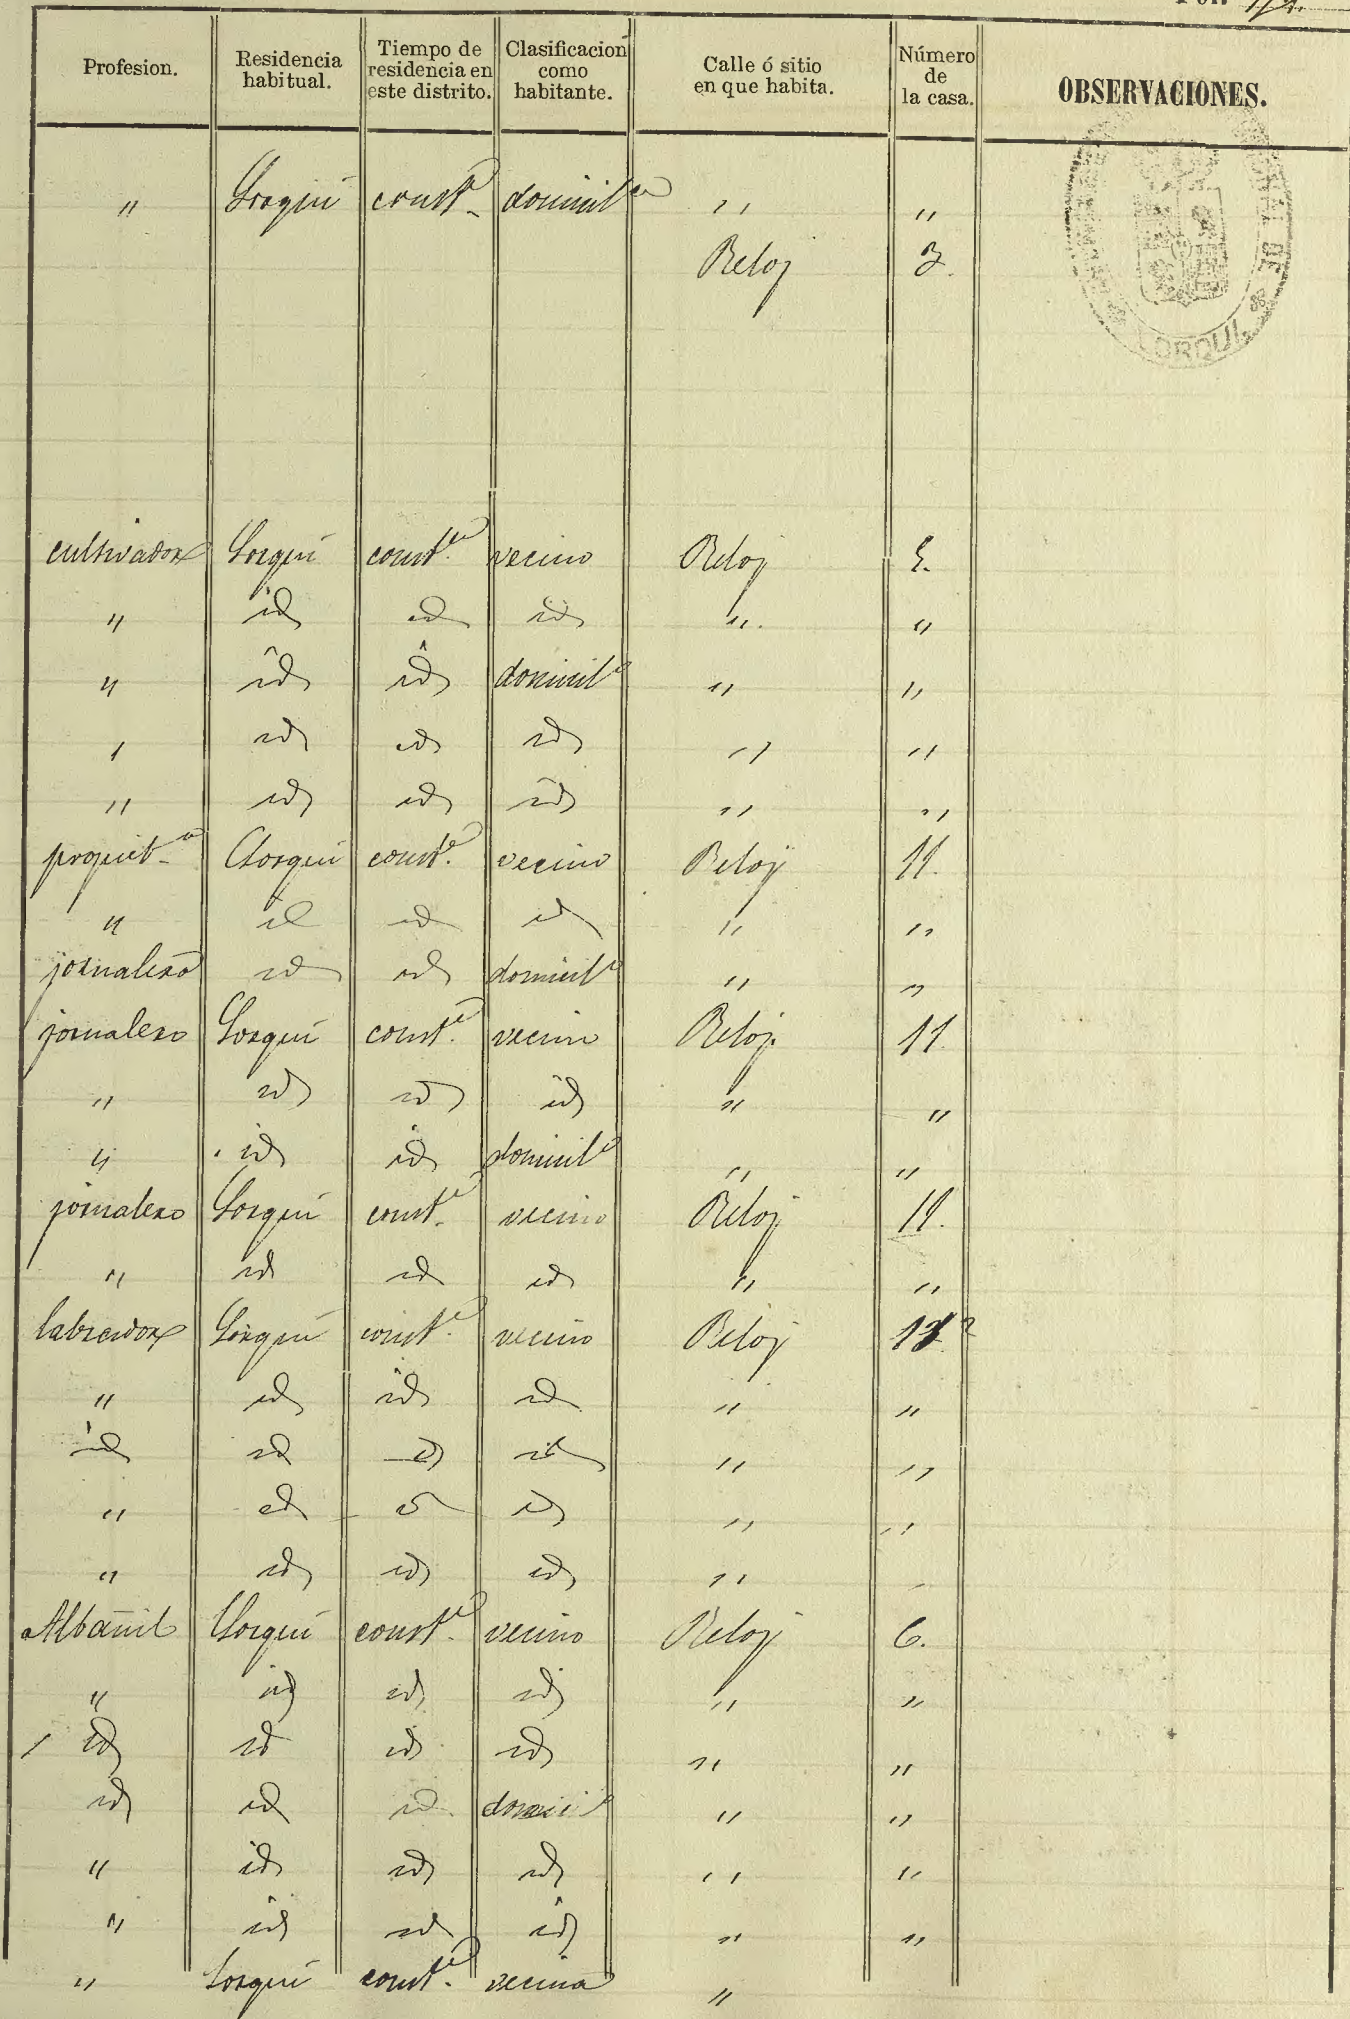 Profesion. Residencia habitual. Tiempo de residencia en este distrito. Clasificacion como habitante. Calle ó sitio en que habita. Número de la casa. OBSERVACIONES.
" Lorquí const.e domicil.a " "
Reloj 3.
LORQUI
cultivador Lorquí const.e vecino Reloj 5.
" id id id " "
" id id domicil.a " "
" id id id " "
" id id id " "
propiet.o Lorquí const.e vecino Reloj 11.
" id id id " "
jornalero id id domicil.o " "
jornalero Lorquí const.e vecino Reloj. 11
" id id id " "
" id id domicil.o " "
jornalero Lorquí const.e vecino Reloj 11.
" id id id " "
labrador Lorquí const.e vecino Reloj
" id id id " "
id id id id " "
" id id id " "
" id id id " "
Albañil Lorquí const.e vecino Reloj 6.
" id id id " "
id id id id " "
id id id domicil.o " "
" id id id " "
" id id id " "
" Lorquí const.e vecina "